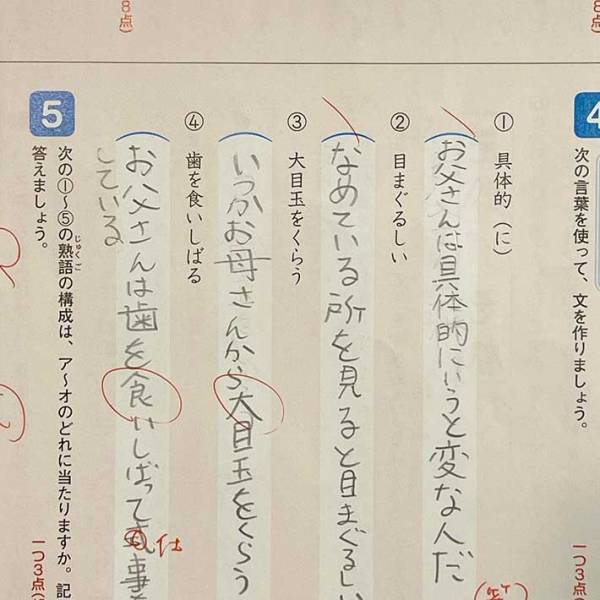 8点）
4
次の言葉を使って、文を作りましょう。
一つ3点（
① 具体的（に）
お父さんは具体的にいうと変なんだ
② 目まぐるしい
なめている所を見ると目まぐるしい
③ 大目玉をくらう
いつかお母さんから大目玉をくらう
④ 歯を食いしばる
お父さんは歯を食いしばって事
仕
している
8点）
5
次の①〜⑤の熟語の構成は、ア〜オのどれに当たりますか。記
じゅくご
答えましょう。
一つ3点（